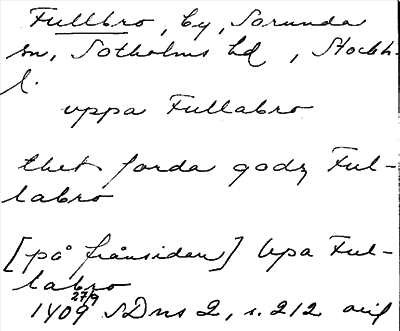 Fullbro, by, Sorunda
sn, Sotholms hd, Stockh.
l.
uppa Fullabro
thet forda godz Ful-
labro
[på frånsidan] Upa Ful-
labro
27/9
1409 SDns 2, s. 212 avil